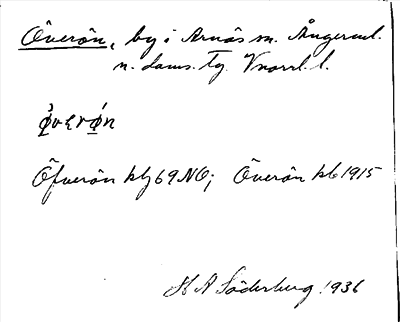 Överön, by i Arnäs sn. Ångerml.
n. doms. Tg. Vnorrl. l.
Öfverön kbj 69 NO; Överön kb 1915
H A Söderberg 1936